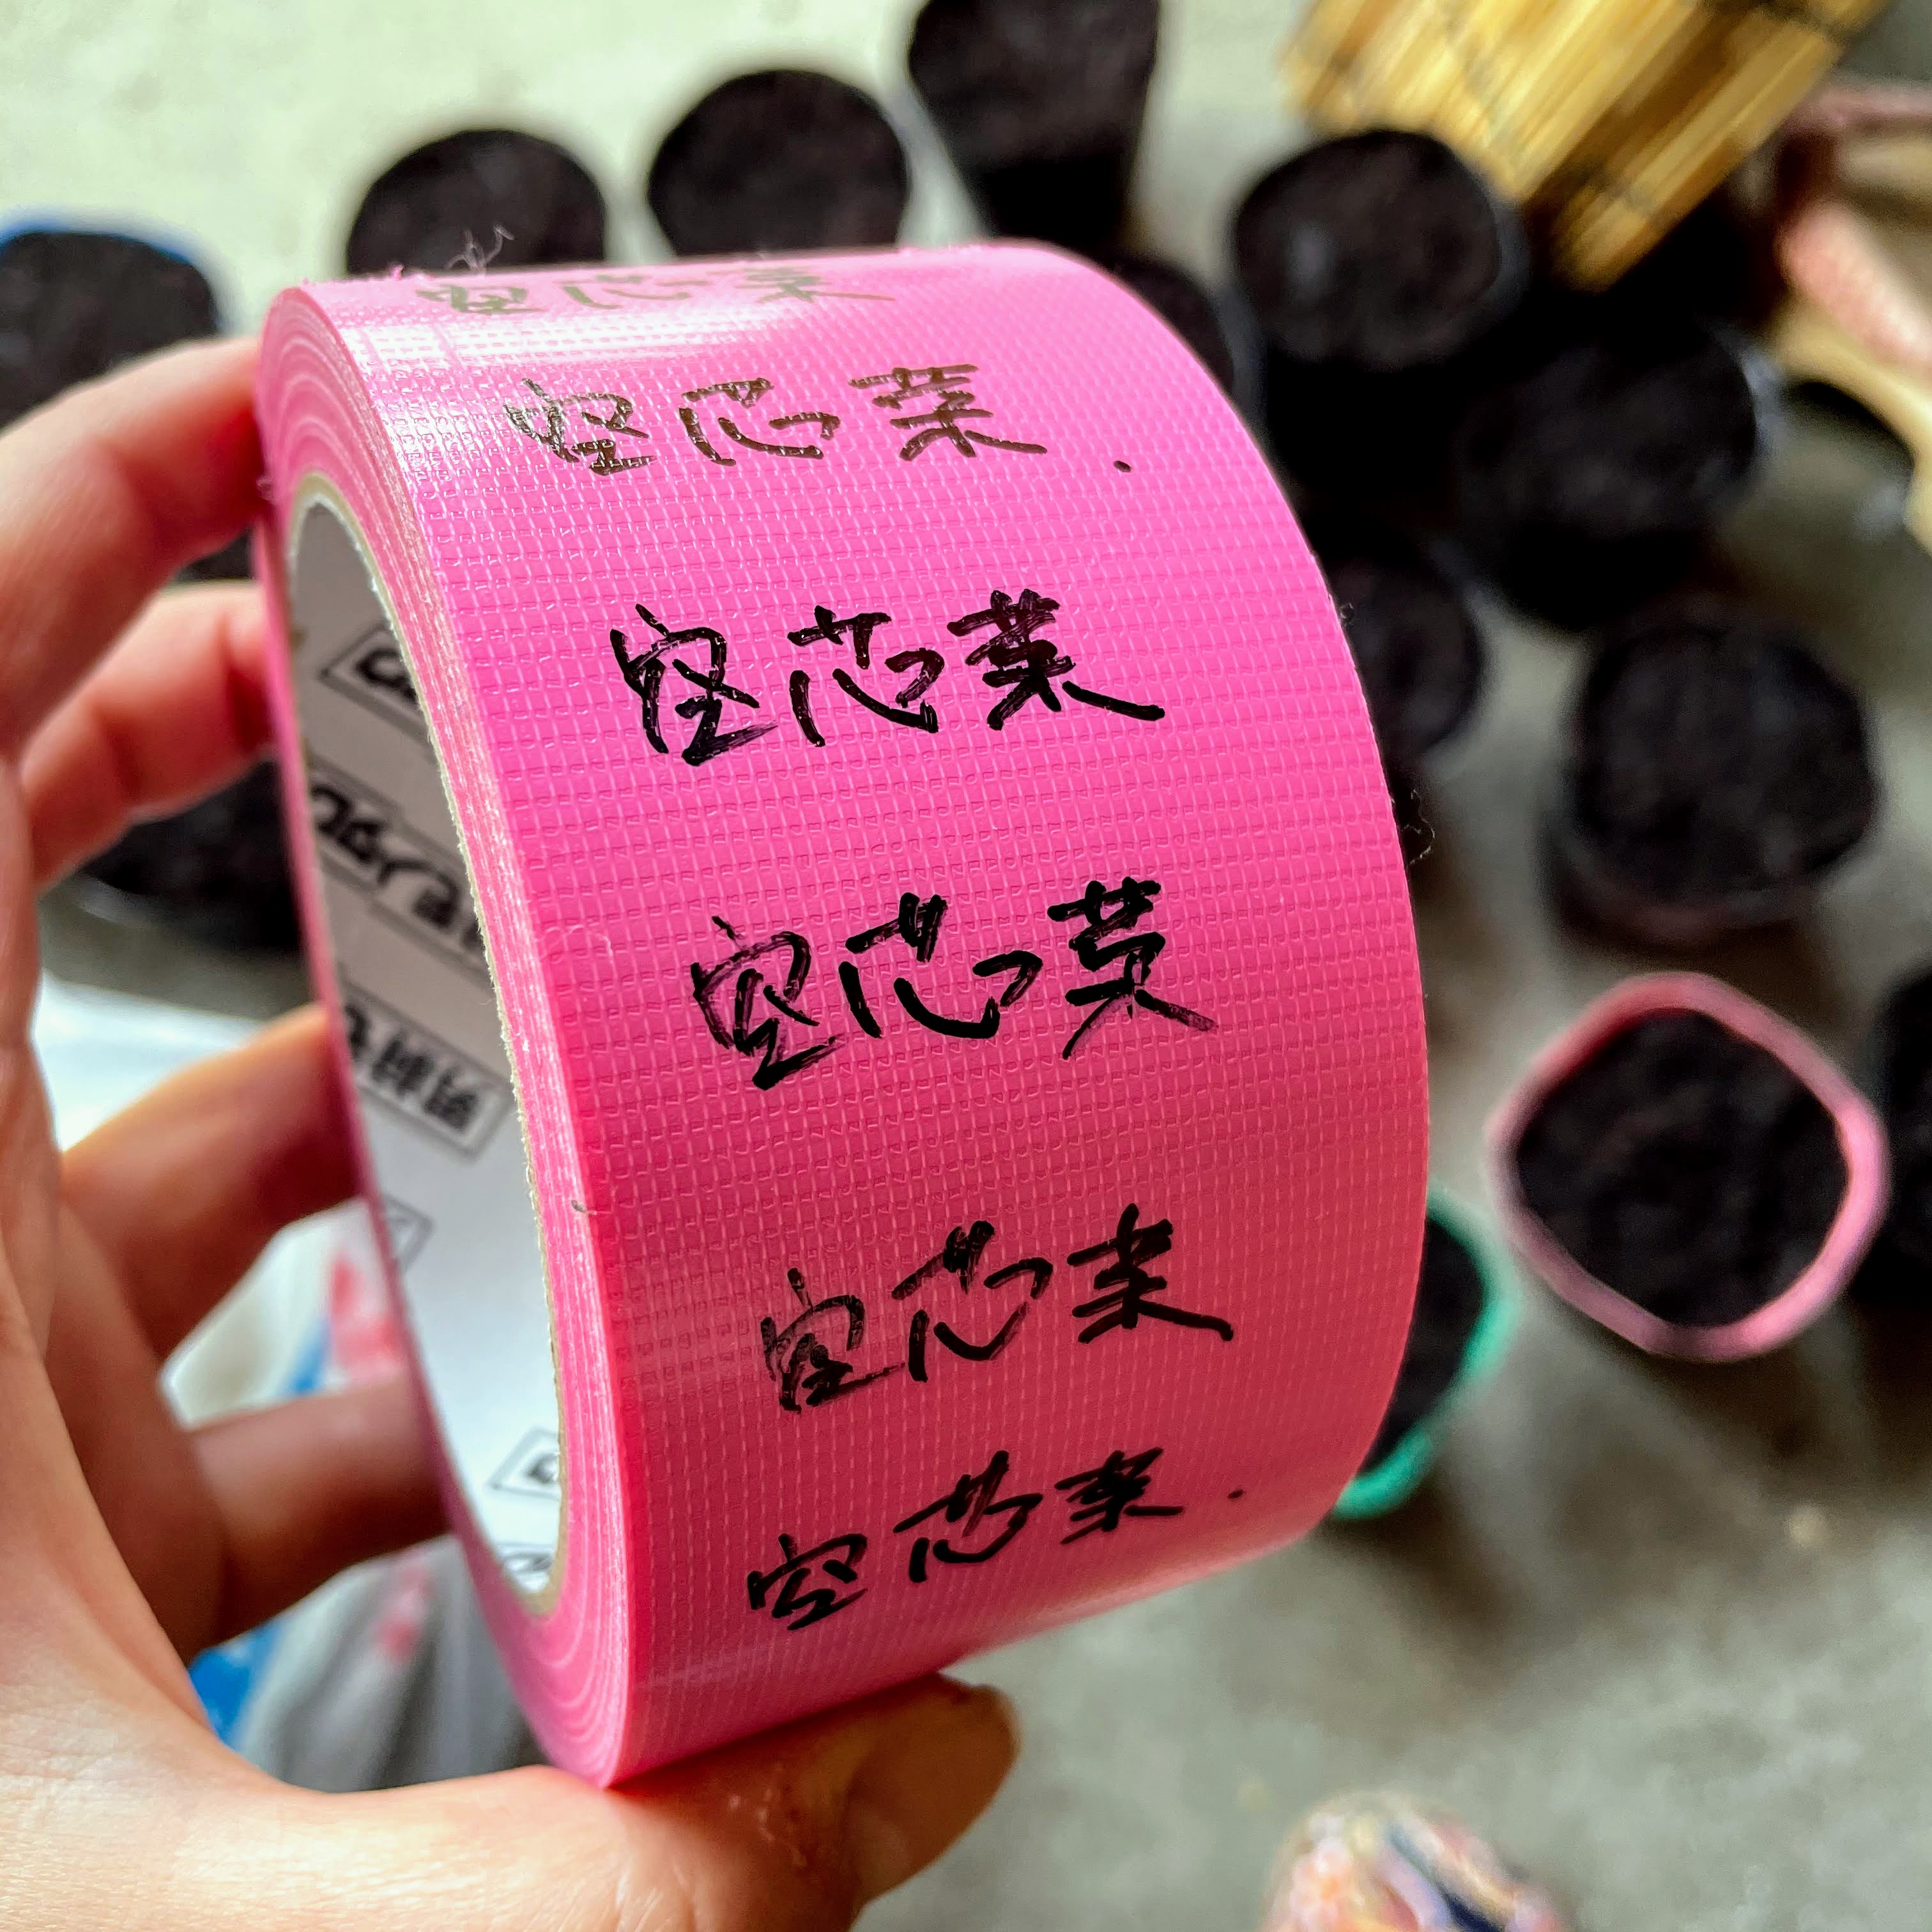 空芯菜
空芯菜
空芯菜
空芯菜
空芯菜
空芯菜